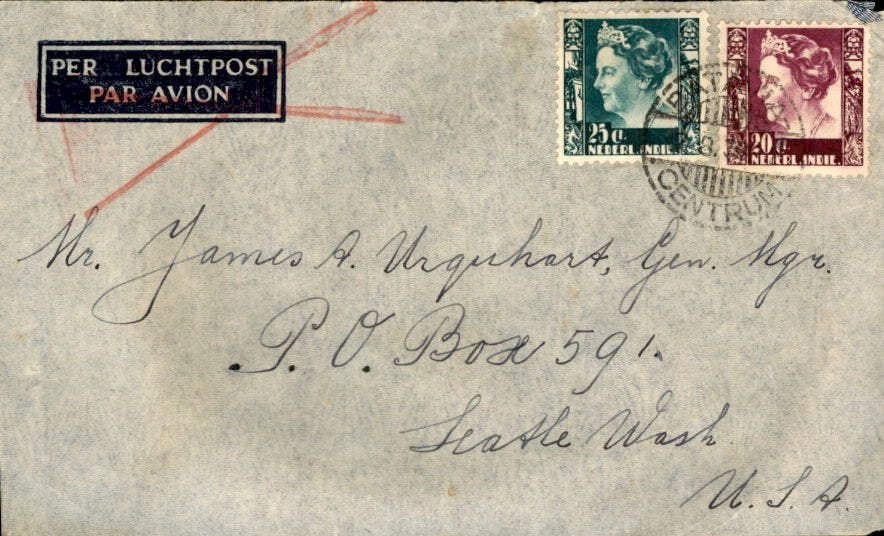 PER LUCHTPOST
PAR AVION
25 ct.
NEDERL. INDIE.
20 ct.
NEDERL. INDIE.
BATAVIA
CENTRUM
Mr. James A. Urquhart, Gen. Mgr.
P. O. Box 591.
Seatle Wash.
U. S. A.